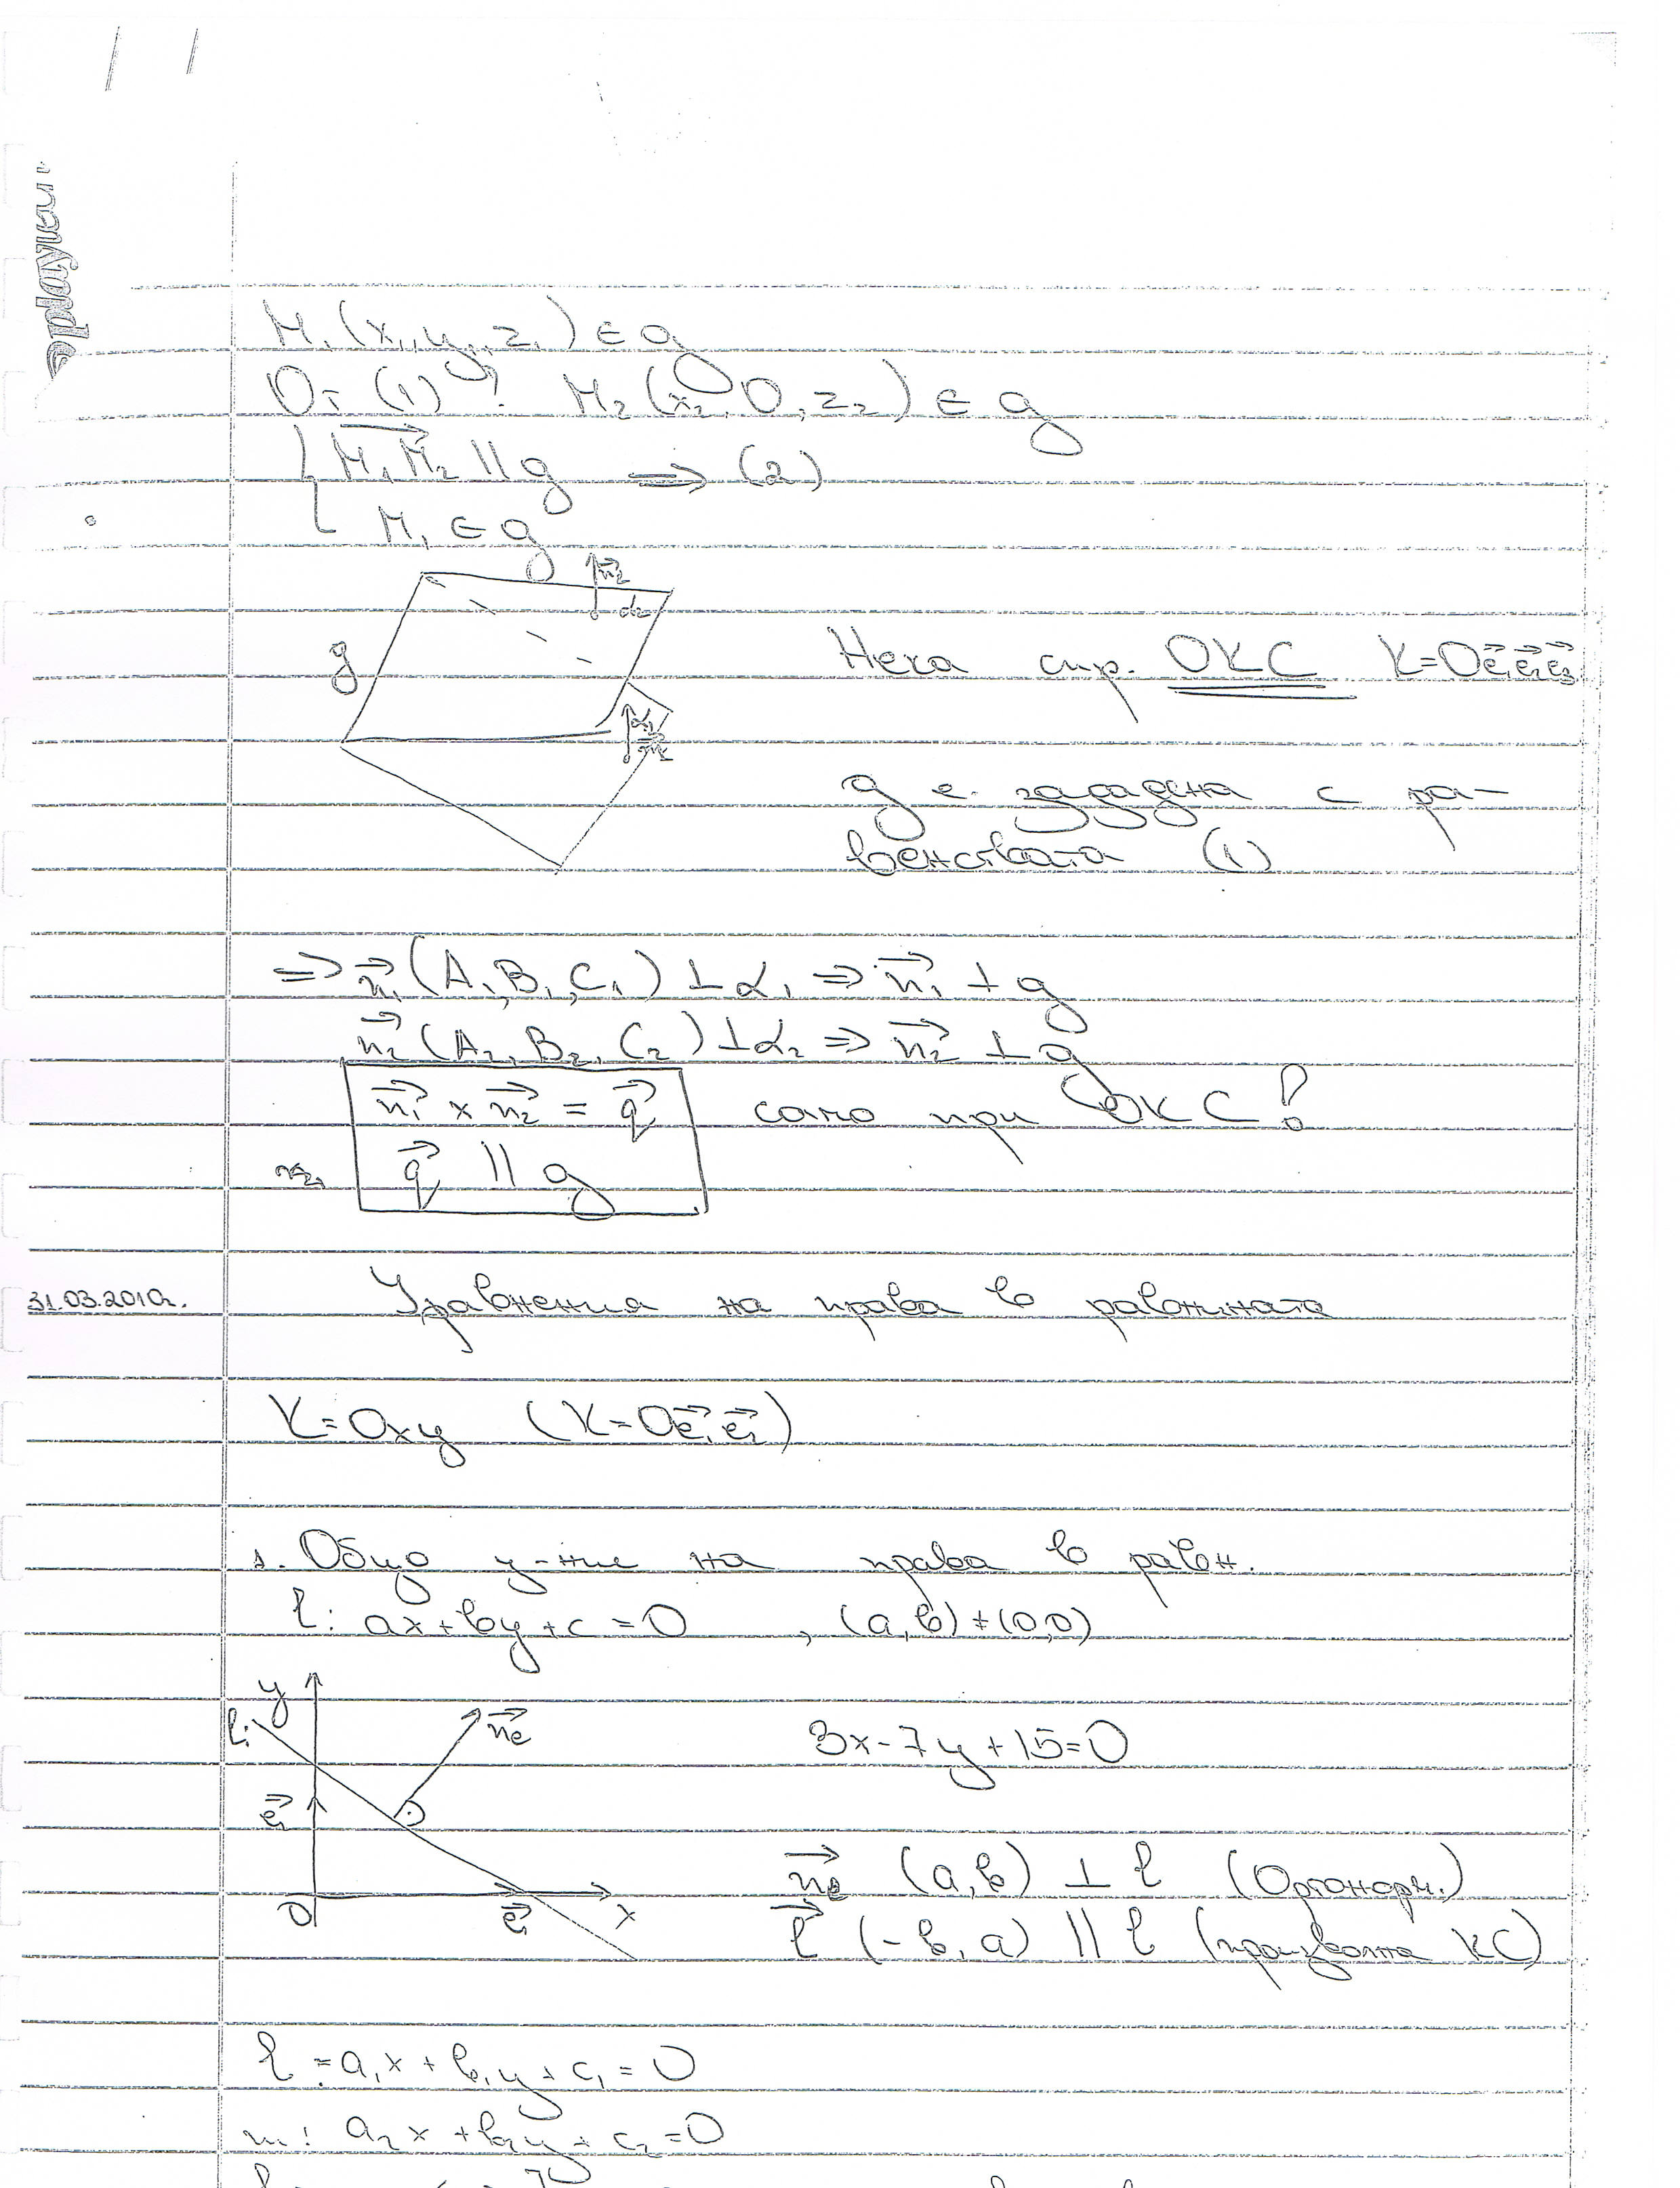 M₁(x₁,y₁,z₁) ∈ g
От (1)! M₂(x₂,0,z₂) ∈ g
M₁M₂ || g ⇒ (2)
M₁ ∈ g
n₂
α₂
g
Нека спр. ОКС K=Oe₁e₂e₃
α₁
n₁
g е зададена с ра-
венствата (1)
⇒ n₁(A₁,B₁,C₁) ⊥ α₁ ⇒ n₁ ⊥ g
n₂(A₂,B₂,C₂) ⊥ α₂ ⇒ n₂ ⊥ g
n₁ × n₂ = q само при ОКС!
q || g
31.03.2010г. Уравнения на права в равнината
K=Oxy (K=Oe₁e₂)
1. Общо у-ние на права в равн.
l: ax+by+c=0 , (a,b)≠(0,0)
y
l:
nₑ
3x-7y+15=0
e₂
O e₁ x
nₑ (a,b) ⊥ l (Ортонорм.)
l (-b,a) || l (произволна КС)
l: = a₁x + b₁y + c₁ = 0
m: a₂x + b₂y + c₂ = 0